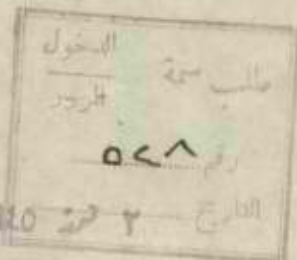 طلب سمة الدخول
المرور
رقم ٥٢٨
التاريخ ٢ تموز